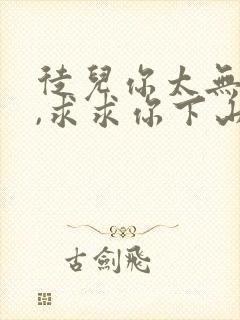 徒兒你太無
,求求你下山
古劍飛